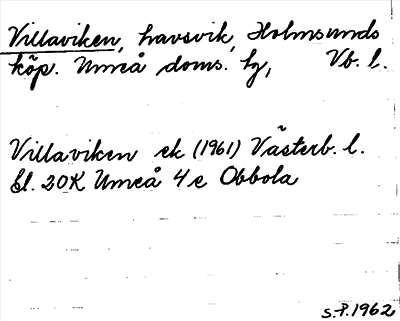 Villaviken, havsvik, Holmsunds
köp. Umeå doms. hg, Vb. l.
Villaviken ek (1961) Västerb. l.
bl. 20K Umeå 4e Obbola
S.-P. 1962